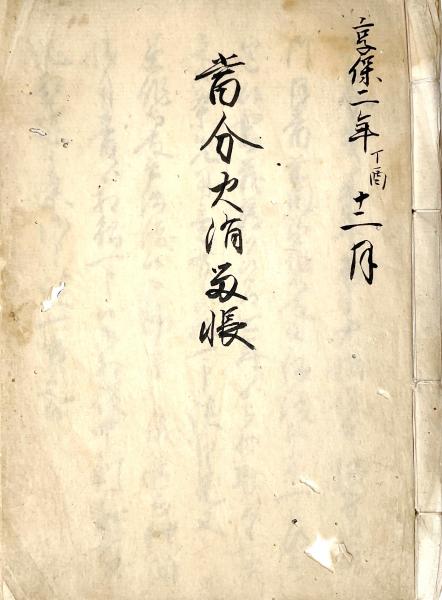 享保二年丁酉十二月
當分火消留帳